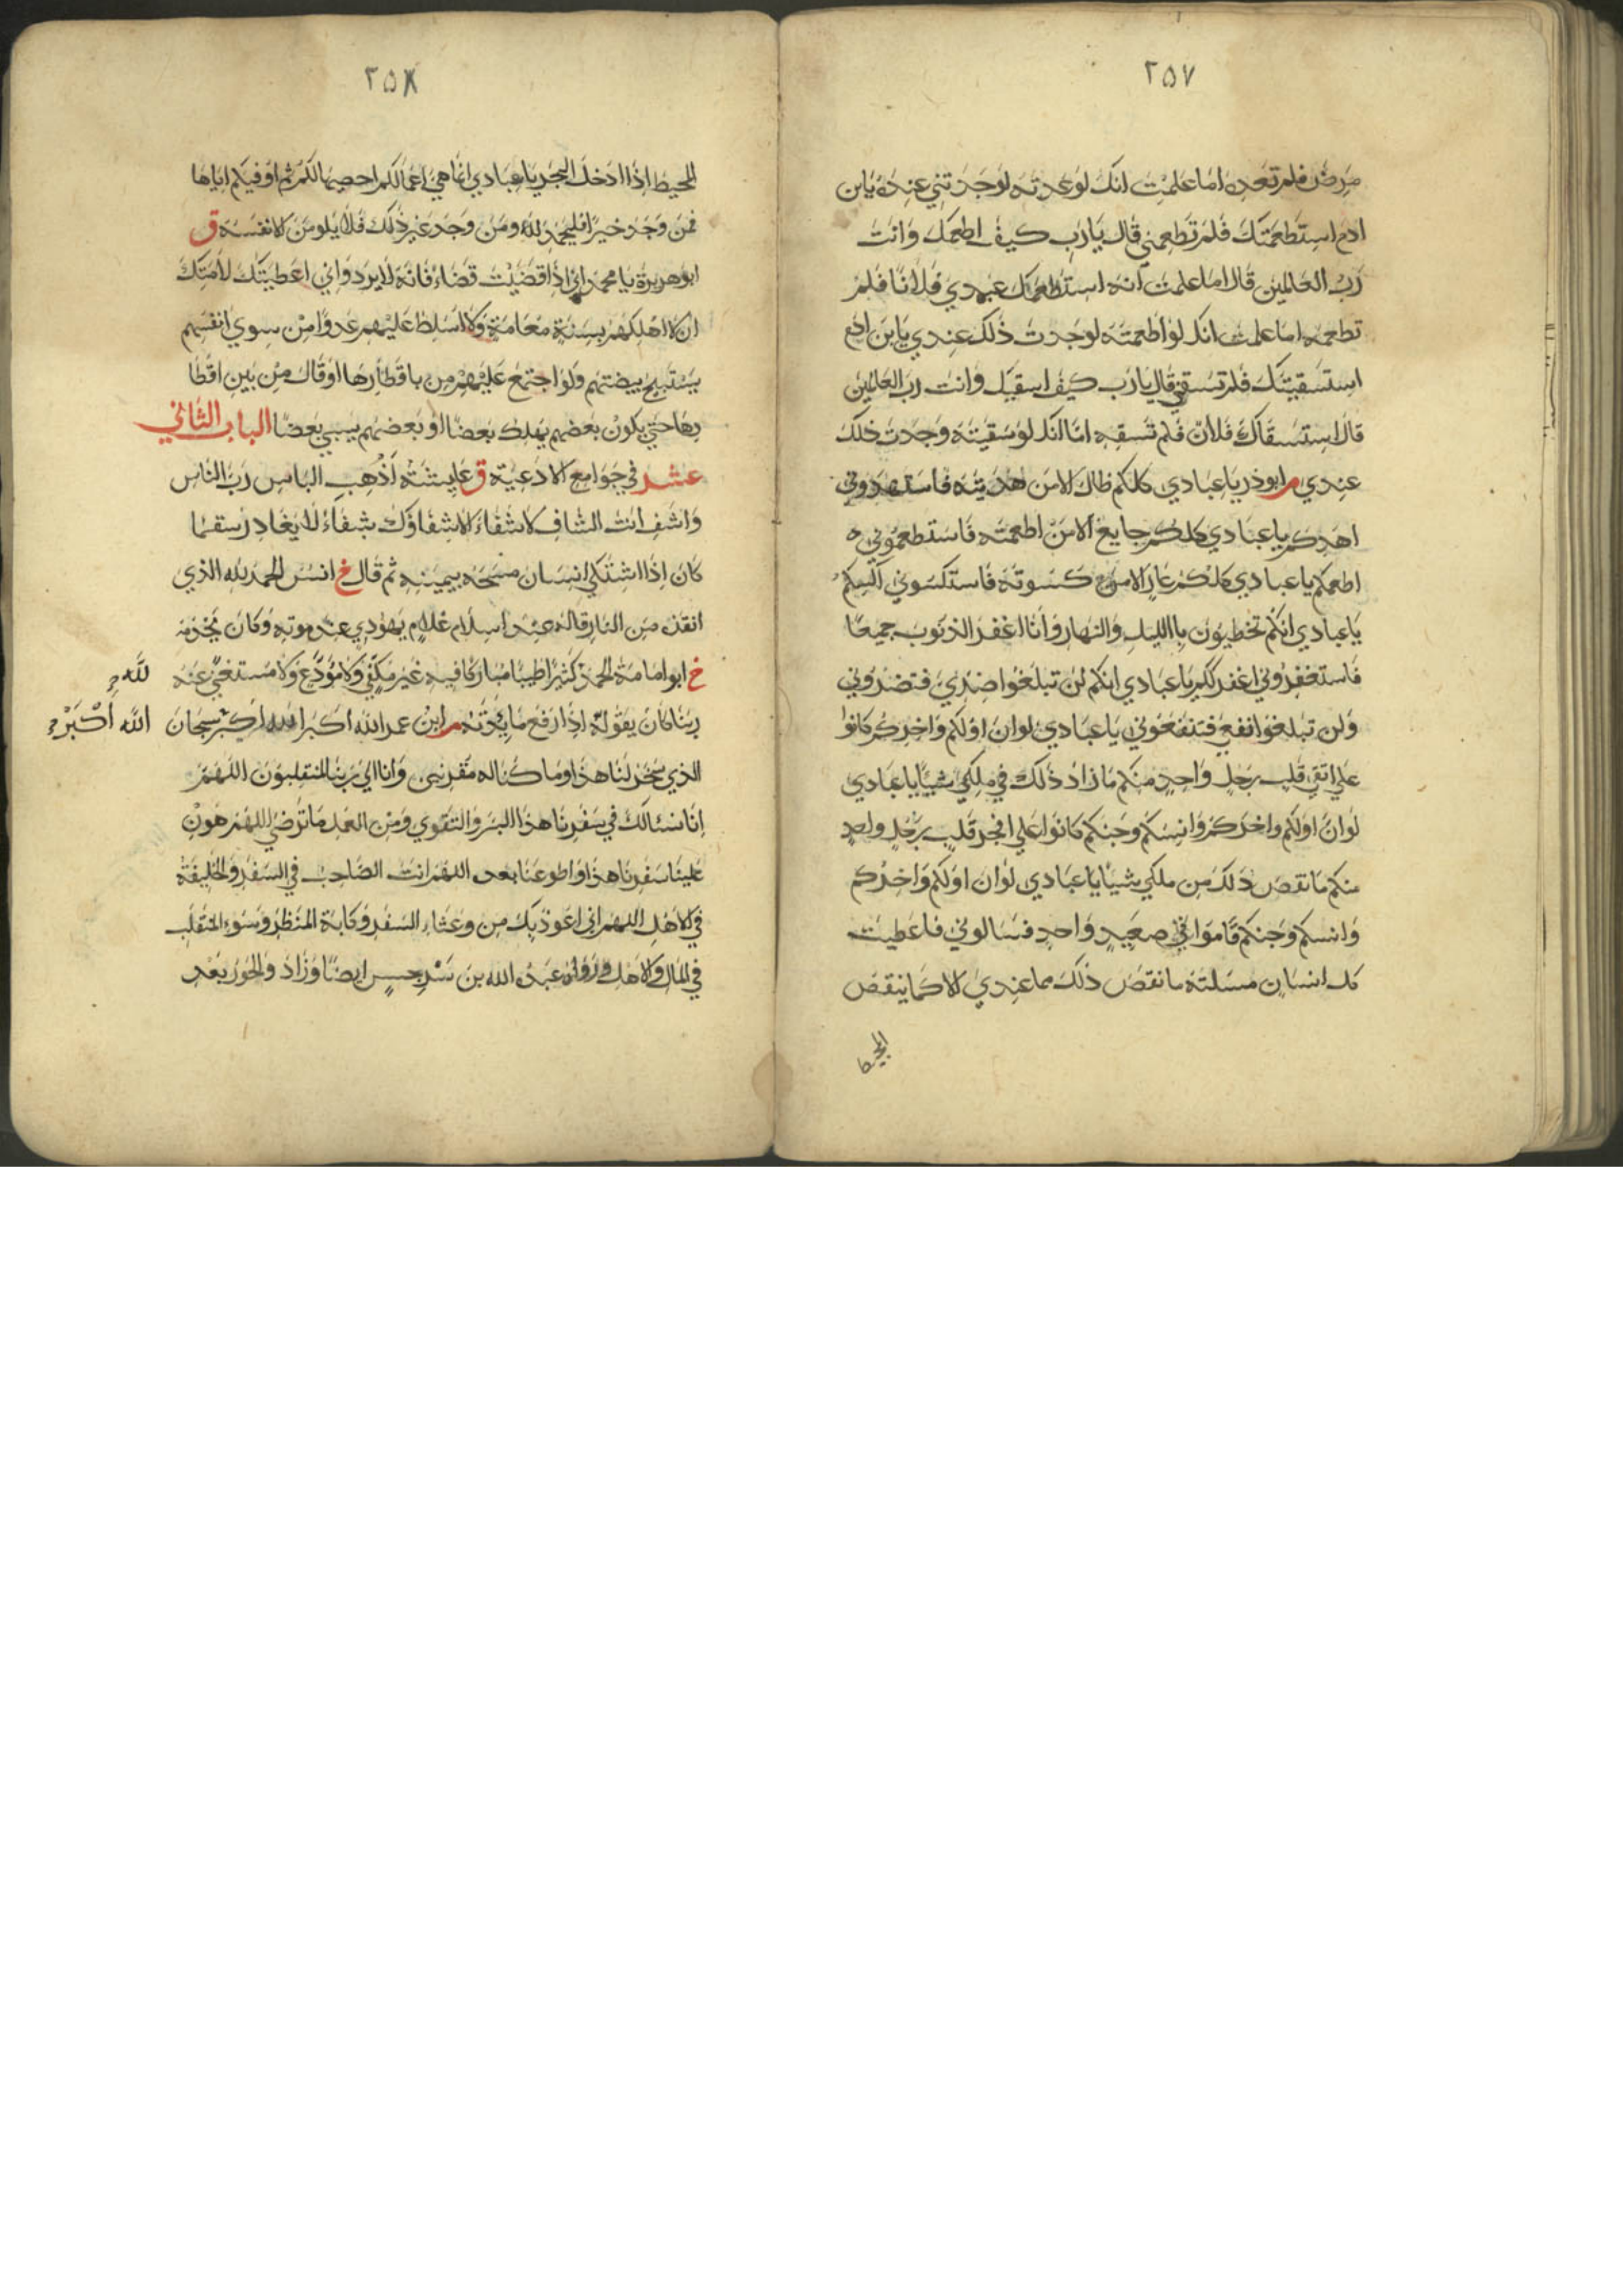 ٢٥٧
مرض فلم تعده اما علمت انك لو عدته لوجدتني عنده يابن
ادم استطعمتك فلم تطعمني قال يارب كيف اطعمك وانت
رب العالمين قال اما علمت انه استطعمك عبدي فلانا فلم
تطعمه اما علمت انك لو اطعمته لوجدت ذلك عندي يابن ادم
استسقيتك فلم تسقني قال يارب كيف اسقيك وانت رب العالمين
قال استسقاك فلان فلم تسقه اما انك لو سقيته وجدت ذلك
عندي م ابوذر يا عبادي كلكم ضال الا من هديته فاستهدوني
اهدكم يا عبادي كلكم جايع الا من اطعمته فاستطعموني
اطعمكم يا عبادي كلكم عار الا من كسوته فاستكسوني اكسكم
يا عبادي انكم تخطيون بالليل والنهار وانا اغفر الذنوب جميعا
فاستغفروني اغفر لكم يا عبادي انكم لن تبلغوا ضري فتضروني
ولن تبلغوا نفعي فتنفعوني يا عبادي لو ان اولكم واخركم كانوا
علي اتقي قلب رجل واحد منكم ما زاد ذلك في ملكي شيئا يا عبادي
لو ان اولكم واخركم وانسكم وجنكم كانوا علي افجر قلب رجل واحد
منكم ما نقص ذلك من ملكي شيئا يا عبادي لو ان اولكم واخركم
وانسكم وجنكم قاموا في صعيد واحد فسالوني فاعطيت
كل انسان مسلته ما نقص ذلك مما عندي الا كما ينقص
المخيط
٢٥٨
المخيط اذا ادخل البحر يا عبادي انما هي اعمالكم احصيها لكم ثم اوفيكم اياها
فمن وجد خيرا فليحمد لله ومن وجد غير ذلك فلا يلومن الا نفسه ق
ابو هريرة يا محمد اني اذا قضيت قضاء فانه لا يرد واني اعطيتك لامتك
ان لا اهلكهم بسنة معامة ولا اسلط عليهم عدوا من سوي انفسهم
يستبيح بيضتهم ولو اجتمع عليهم من باقطارها او قال من بين اقطا
رها حتي يكون بعضهم يهلك بعضا او بعضهم يسبي بعضا الباب الثاني
عشر في جوامع الادعية ق عايشة اذهب الباس رب الناس
واشف انت الشاف لا شفاء الا شفاؤك شفاء لا يغادر سقما
كان اذا اشتكي انسان مسحه بيمينه ثم قال خ انس الحمد لله الذي
انقذ من النار قاله عند اسلام غلام يهودي عند موته وكان يخدمه
خ ابو امامة الحمد كثيرا طيبا مباركا فيه غير مكفي ولا مودع ولا مستغني عنه
لله
ربنا كان يقوله اذا رفع مايدته م ابن عمر الله اكبر الله اكبر سبحان
الله اكبر
الذي سخر لنا هذا وما كنا له مقرنين وانا الي ربنا لمنقلبون اللهم
انا نسئالك في سفرنا هذا البر والتقوي ومن العمل ما ترضي اللهم هون
علينا سفرنا هذا واطو عنا بعده اللهم انت الصاحب في السفر والخليفة
في الاهل اللهم اني اعوذ بك من وعثاء السفر وكابة المنظر وسوء المنقلب
في المال والاهل عبد الله بن سرجس ايضا وزاد والحور بعد